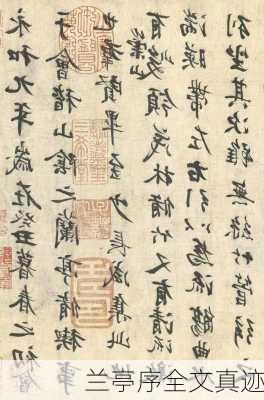 永和九年歲在癸丑暮春之初會
于會稽山陰之蘭亭脩禊事
也群賢畢至少長咸集此
有崇山峻領茂林脩竹又有清流
湍暎帶左右引以為流觴曲
列坐其次雖無絲竹管弦之
兰亭序全文真迹